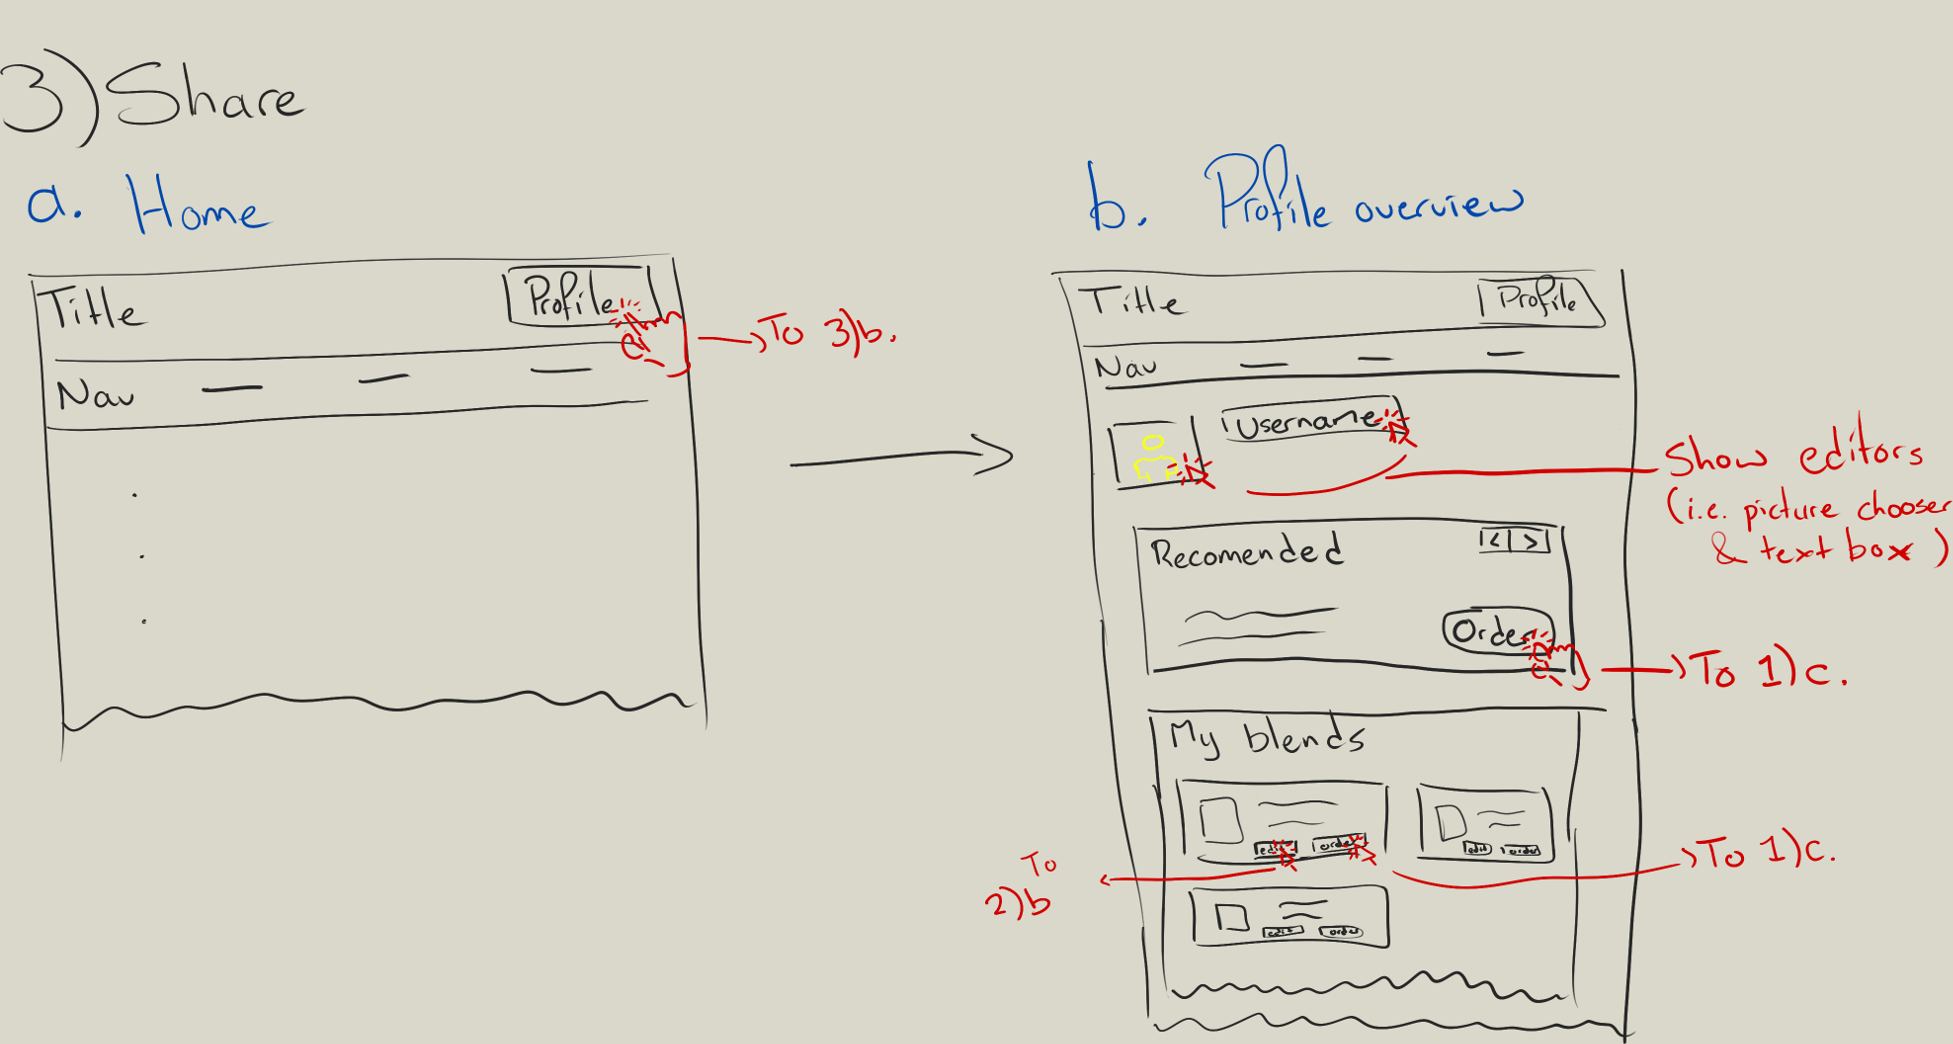 3) Share
a. Home
Title
Profile
To 3)b.
Nav
b. Profile overview
Title
Profile
Nav
Username
Show editors
(i.e. picture chooser
& text box)
Recomended
< >
Order
To 1)c.
My blends
edit order
edit order
To 1)c.
To
2)b
edit order